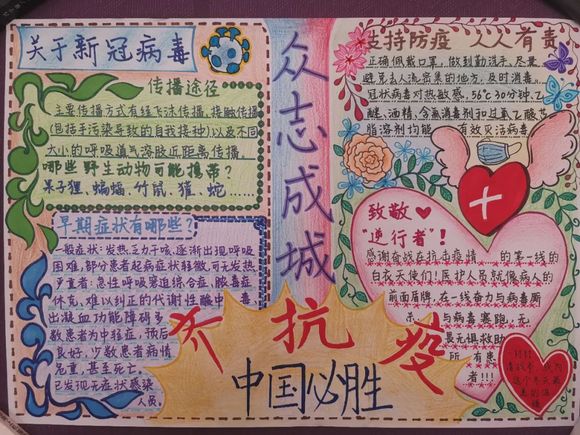 关于新冠病毒
传播途径
主要传播方式有经飞沫传播、接触传播
(包括手污染导致的自我接种)以及不同
大小的呼吸道气溶胶近距离传播。
哪些野生动物可能携带?
果子狸、蝙蝠、竹鼠、獾、蛇……
早期症状有哪些?
一般症状:发热、乏力干咳、逐渐出现呼吸
困难,部分患者起病症状轻微,可无发热。
严重者:急性呼吸窘迫综合症、脓毒症
休克、难以纠正的代谢性酸中毒、
出凝血功能障碍多
数患者为中轻症,预后
良好,少数患者病情
危重,甚至死亡。
已发现无症状感染
人员。
众志成城
支持防疫 人人有责
正确佩戴口罩,做到勤洗手,尽量
避免去人流密集的地方,及时消毒。
冠状病毒对热敏感,56℃30分钟、乙
醚、酒精、含氯消毒剂和过氧乙酸等
脂溶剂均能 有效灭活病毒
致敬
“逆行者”!
感谢奋战在抗击疫情 的第一线的
白衣天使们!医护人员就像病人的
前面盾牌,在一线奋力与病毒厮
杀 与病毒赛跑,无
畏无惧救助
所有患
者!!!
齐抗疫
中国必胜